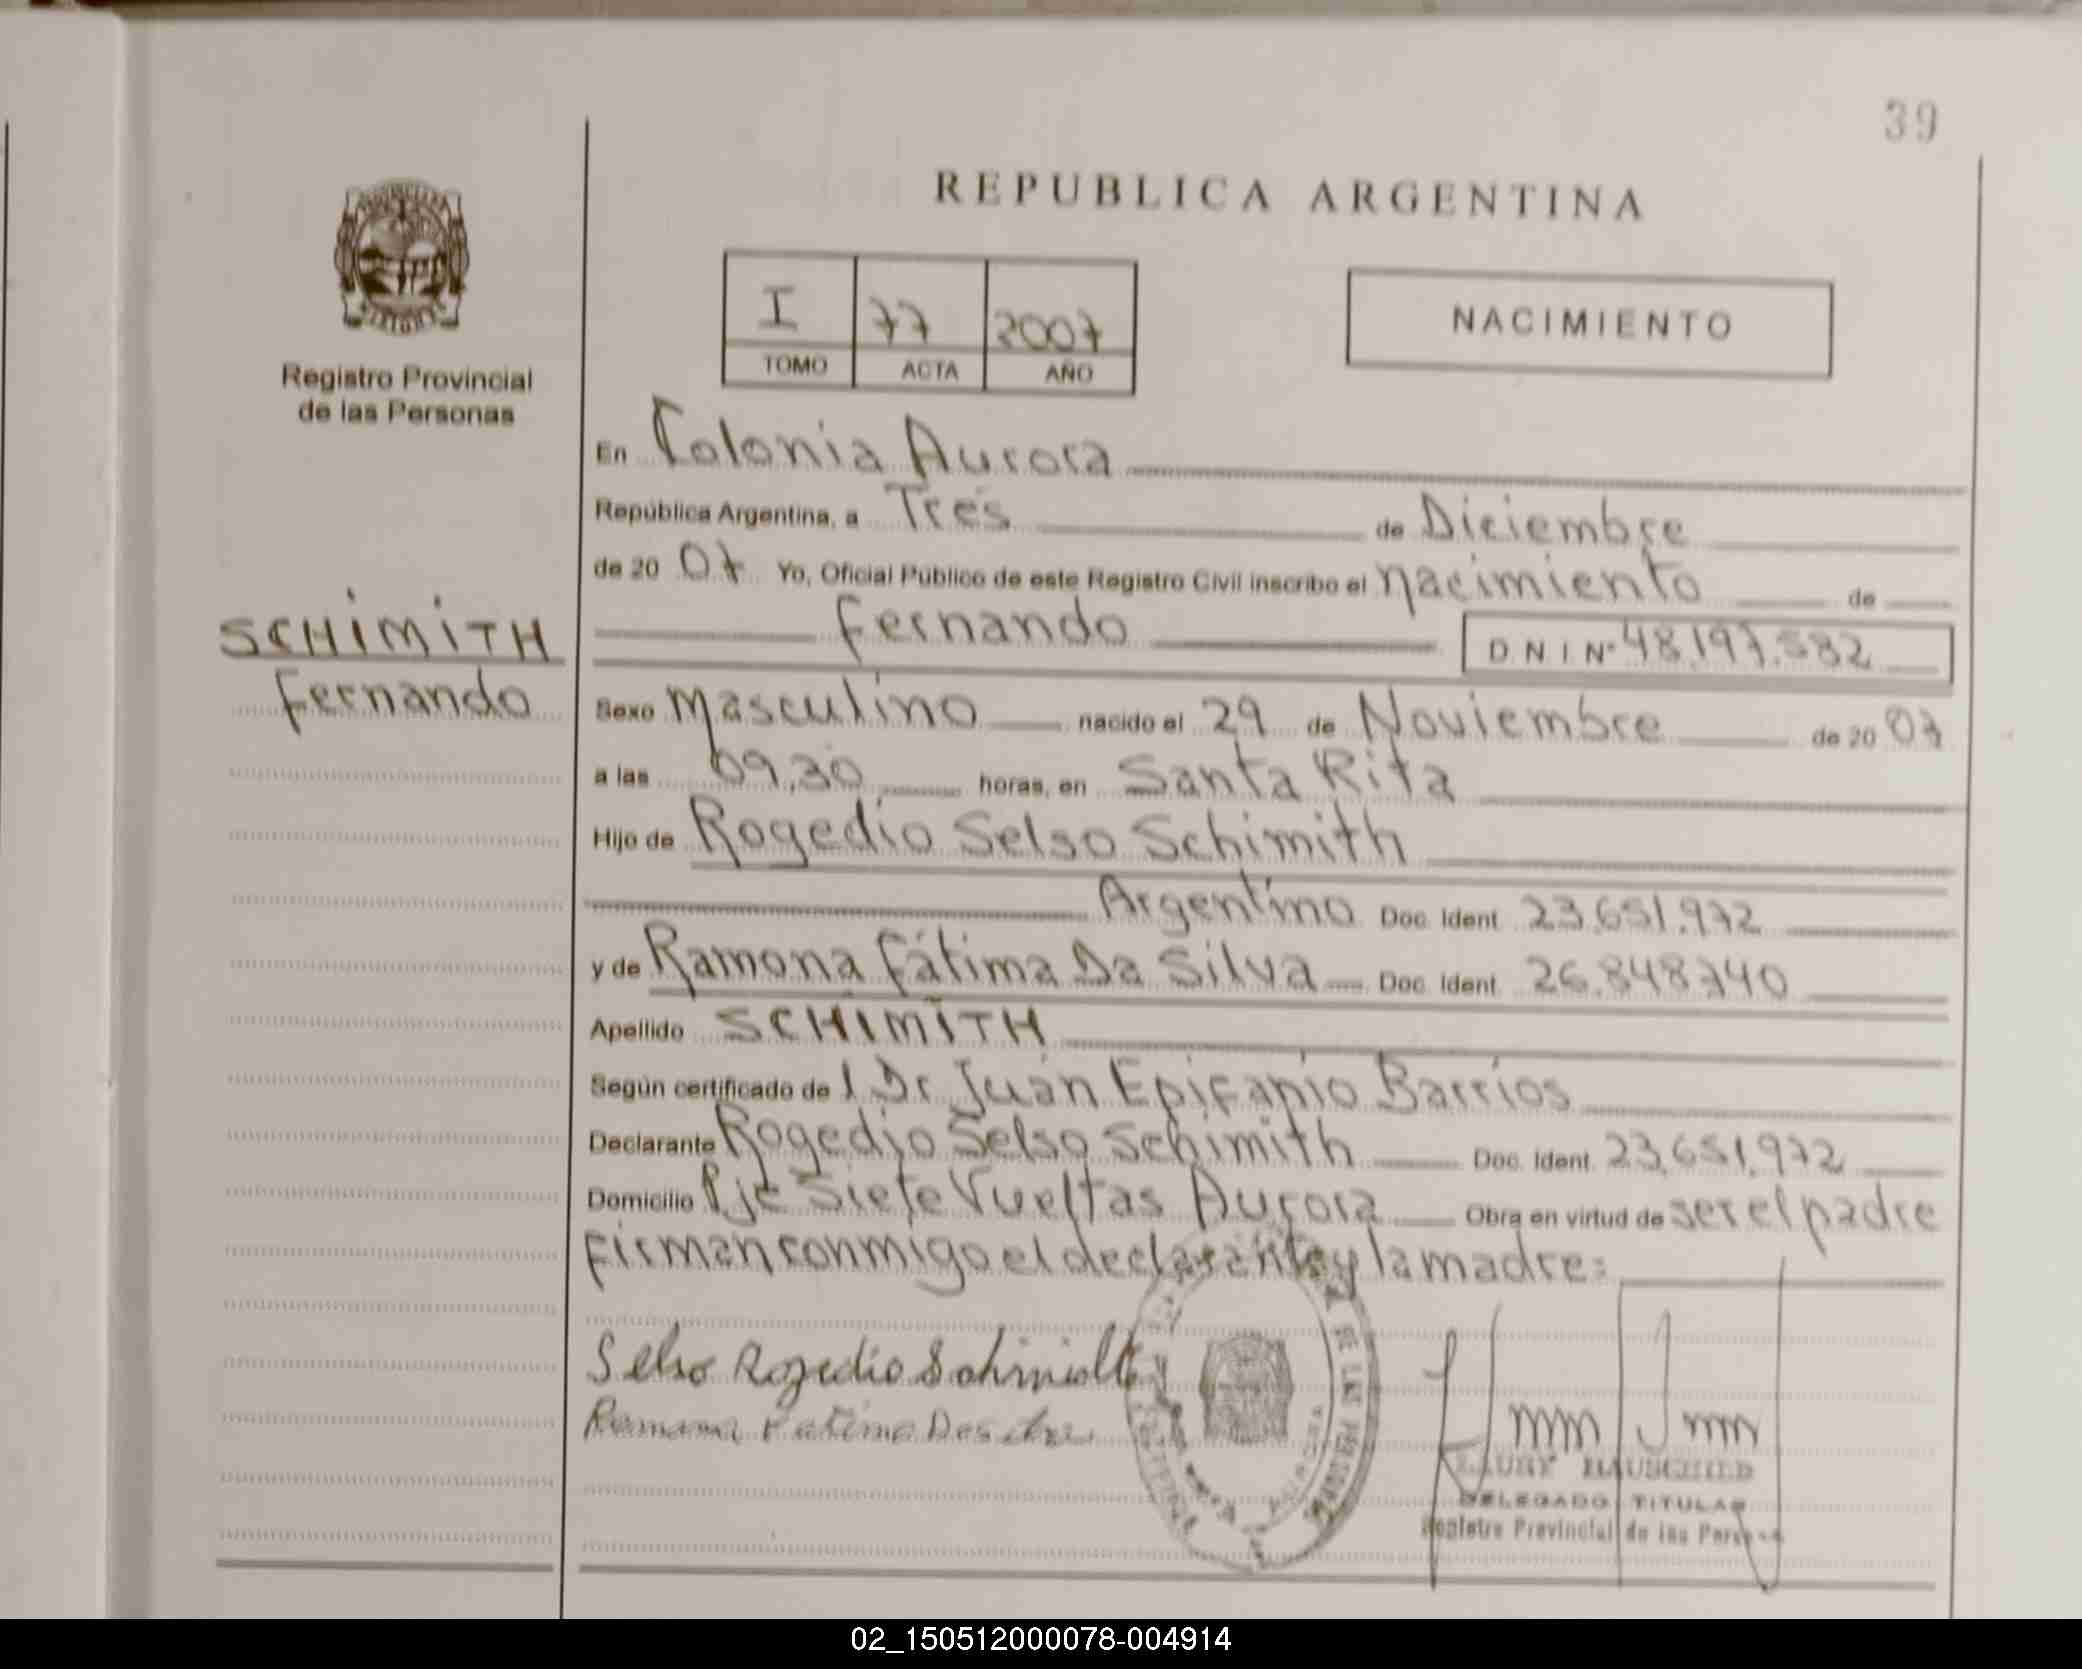 39
REPUBLICA ARGENTINA
Registro Provincial
de las Personas
I 77 2007
TOMO ACTA AÑO
NACIMIENTO
En Colonia Aurora
República Argentina, a Tres de Diciembre
de 20 07 Yo, Oficial Público de este Registro Civil inscribo el nacimiento de
SCHIMITH
Fernando
Fernando D N I Nº 48.197.582
Sexo Masculino nacido el 29 de Noviembre de 20 07
a las 09,30 horas, en Santa Rita
Hijo de Rogedio Selso Schimith
Argentino Doc. Ident. 23.651.972
y de Ramona Fátima Da Silva Doc. Ident. 26.848740
Apellido SCHIMITH
Según certificado de l Dr Juan Epifanio Barrios
Declarante Rogedio Selso Schimith Doc. Ident. 23.651.972
Domicilio Pje Siete Vueltas Aurora Obra en virtud de ser el padre
firman conmigo el declarante y la madre:
Selso Rogedio
Ramona Fatima
DE LAS PERSONAS
HAUSCHILD
DELEGADO TITULAR
Registro Provincial de las
02_150512000078-004914